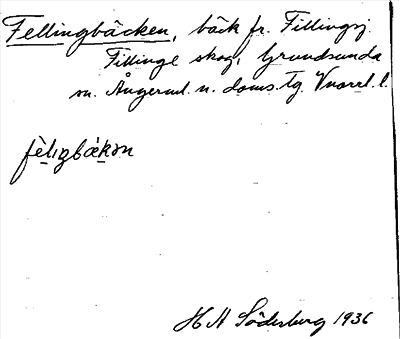 Fellingbäcken, bäck fr. Fillingsj.
Fillinge skog, Grundsunda
sn. Ångerml. n. doms. tg. Vnorrl. l.
fèlıŋbǽkən
H A Söderberg 1936